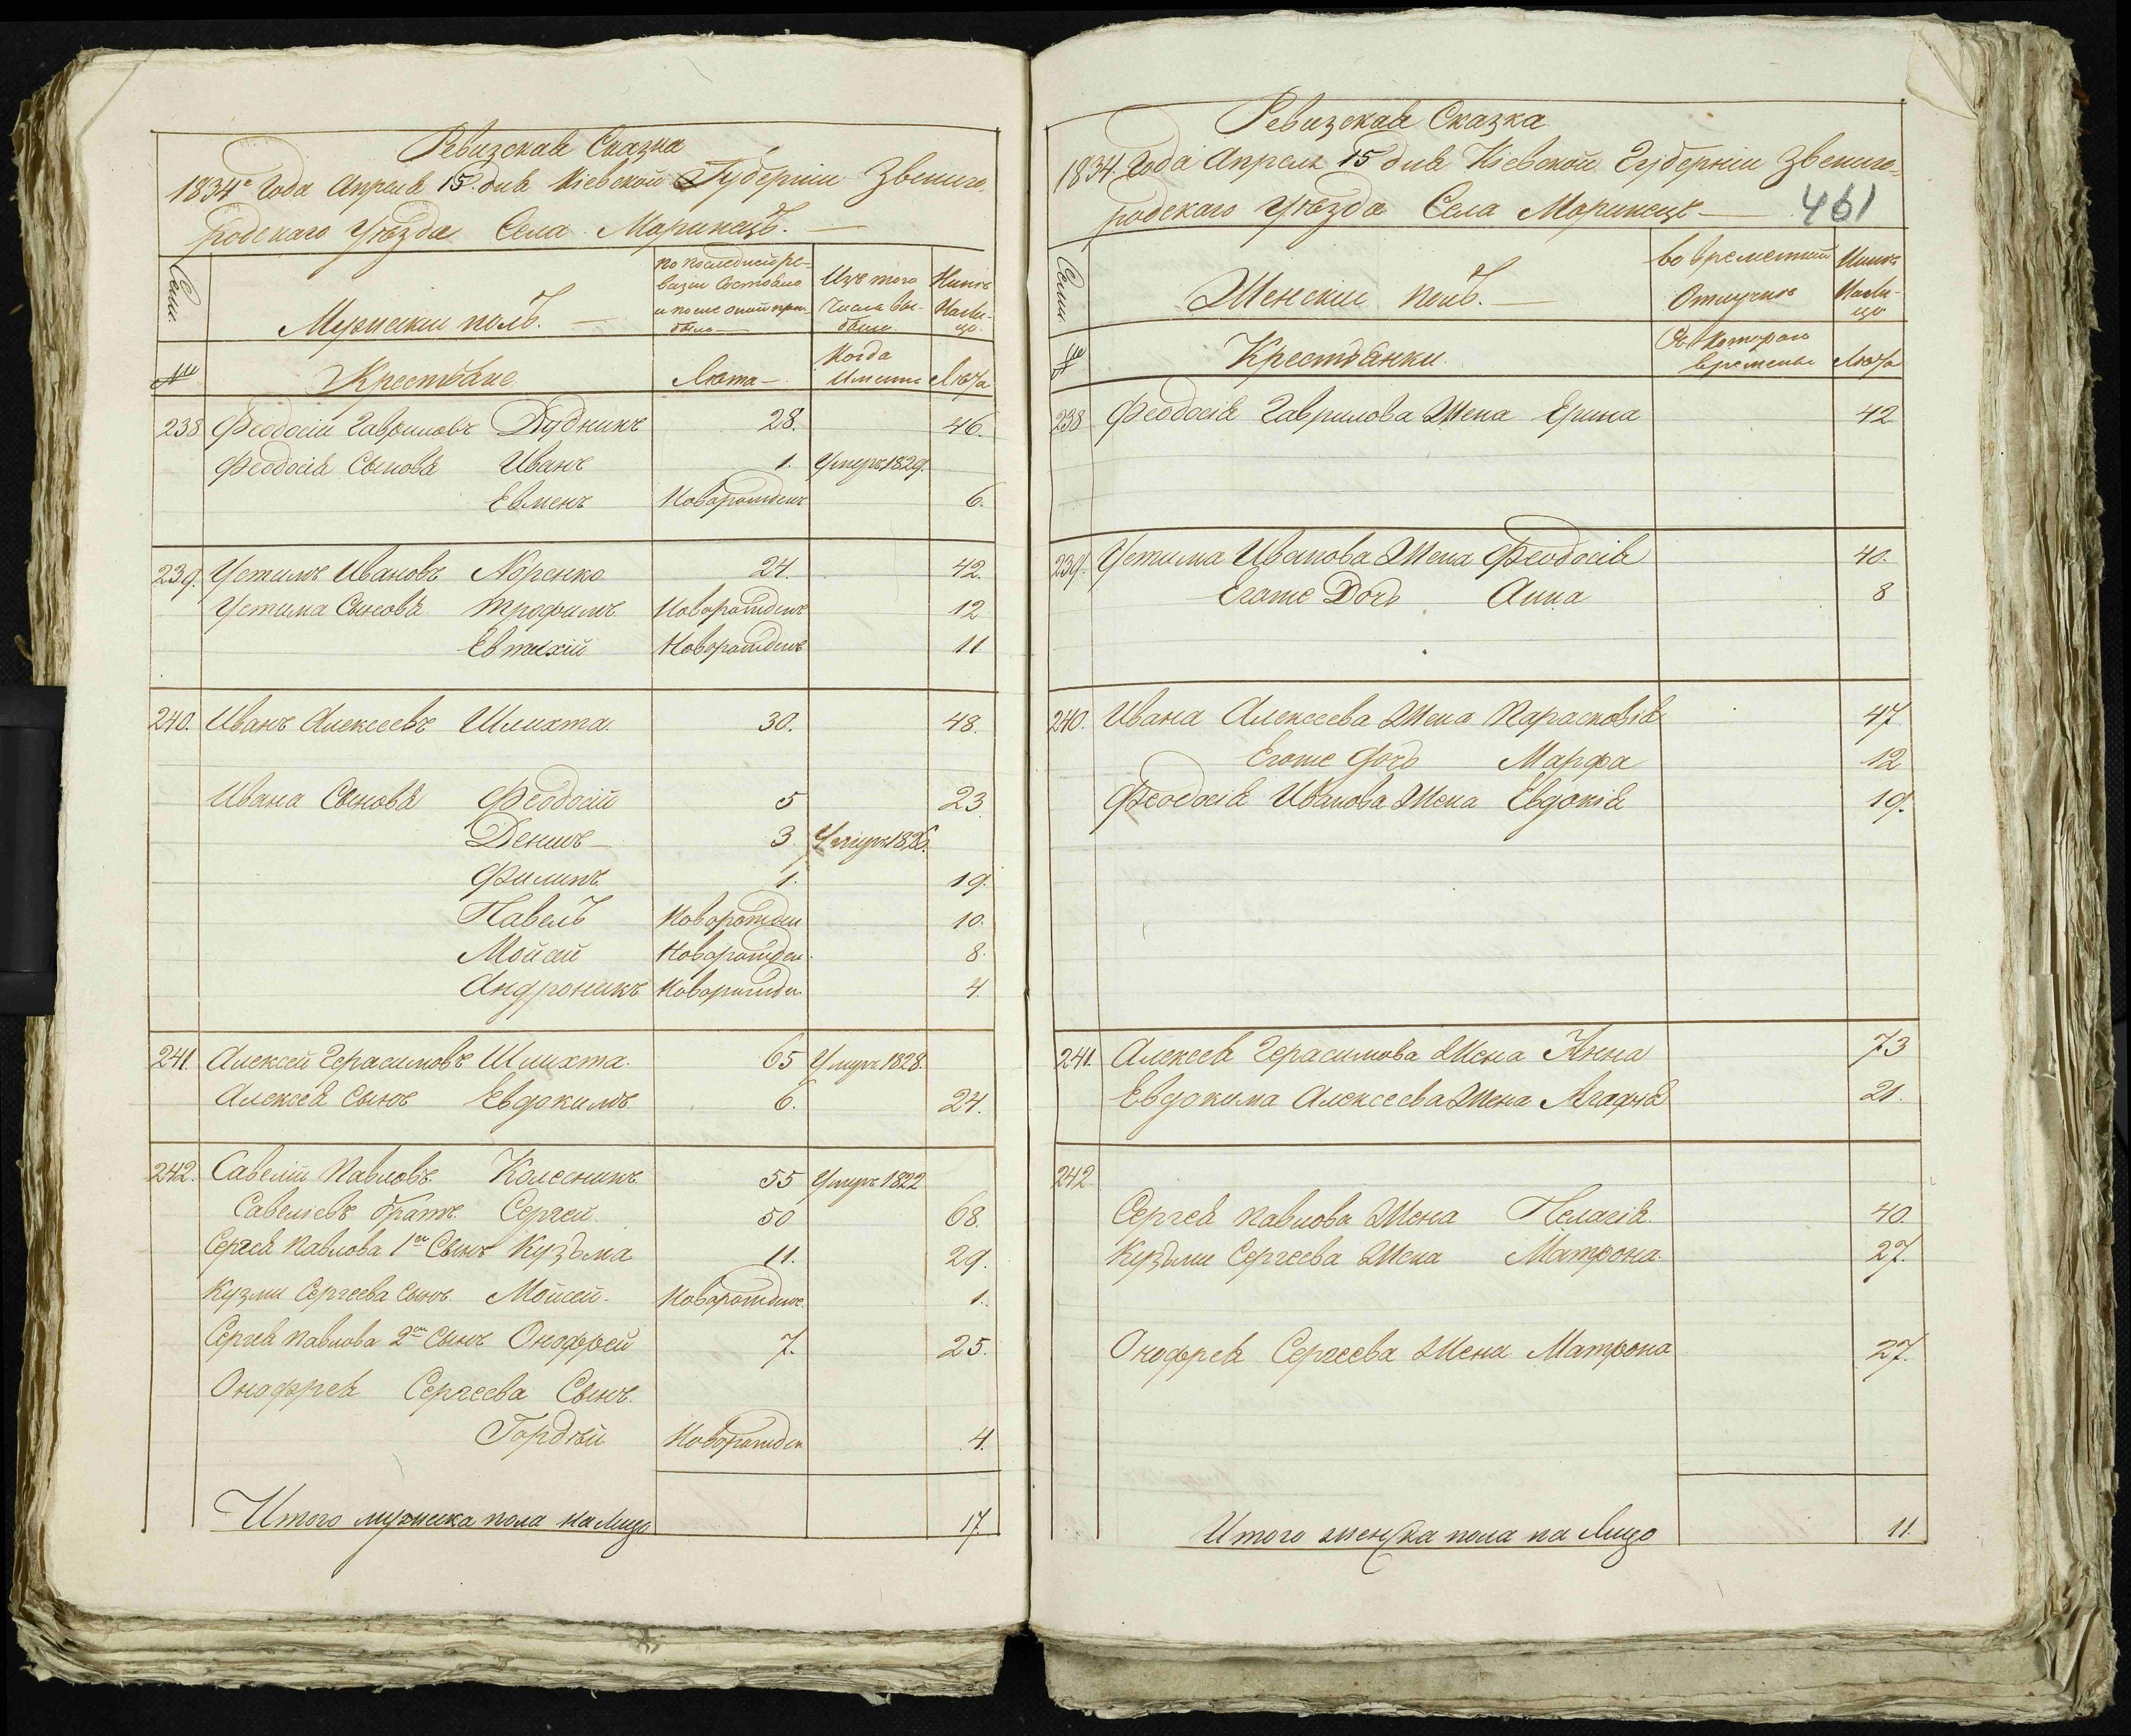 Ревизская Сказка
1834го Года Апреля 15 дня Кіевской Губерніи Звениго-
родскаго Уѣзда Села Моринецъ. —
Семи.
Мужески полъ. —
По последней ре-
визіи Состояло
и после оной при-
было
Изъ того
Числа вы-
было.
Нинѣ
На Ли-
цо.
№
Крестьяне
Лѣта —
Когда
Именно
Лѣта
238 Феодосій Гавриловъ Дудникъ 28. 46.
Феодосія Сыновя Иванъ 1. Умеръ 1829.
Евменъ Новорожденъ 6.
239. Устимъ Ивановъ Норенко 24. 42.
Устима Сыновя Трофимъ Новорожденъ 12
Евтихій Новорожденъ 11
240. Иванъ Алексеевъ Шлихта. 30. 48.
Ивана Сыновя Феодосій 5 23.
Денисъ — 3. Умеръ 1826.
Филипъ 1. 19.
Павелъ Новорожден 10.
Мойсей Новорожден. 8.
Андроникъ Новорожден 4.
241. Алексей Герасимовъ Шлихта. 65 Умеръ 1828.
Алексея Сынъ Евдокимъ 6. 24.
242. Савелій Павловъ Колесникъ 55 Умеръ 1822
Савеліевъ братъ Сергей. 50 68.
Сергея Павлова 1й Сынъ Кузьма 11. 29.
Кузми Сергеева Сынъ Мойсей — Новорожденъ 1.
Сергея Павлова 2й Сынъ Онофрей 7. 25.
Онофрея Сергеева Сынъ.
Гордѣй Новорожден 4.
Итого мужеска пола на Лицо 17
Ревизская Сказка
1834. Года Апреля 15 дня Кіевской Губерніи Звениго-
родскаго Уѣзда Села Моринецъ — 461
Семи.
Женски полъ. —
Во временной
Отлучкѣ
Нинѣ
На Ли-
цо
№
Крестьянки.
Съ Котораго
времены
Лѣта
238 Феодосія Гаврилова Жена Ерина 42
239. Устима Иванова Жена Феодосія 40.
Егоже Дочь Анна 8
240. Ивана Алексеева Жена Парасковія 47
Егоже Дочь Марфа 12
Феодосія Иванова Жена Евдокія 19.
241. Алексея Герасимова Жена Анна 73
Евдокима Алексеева Жена Агафія 21.
242.
Сергея Павлова Жена Пелагія. 40.
Кузьми Сергеева Жена Матрона. 27.
Онофрея Сергеева Жена Матрона 27.
Итого женска пола на Лицо 11.